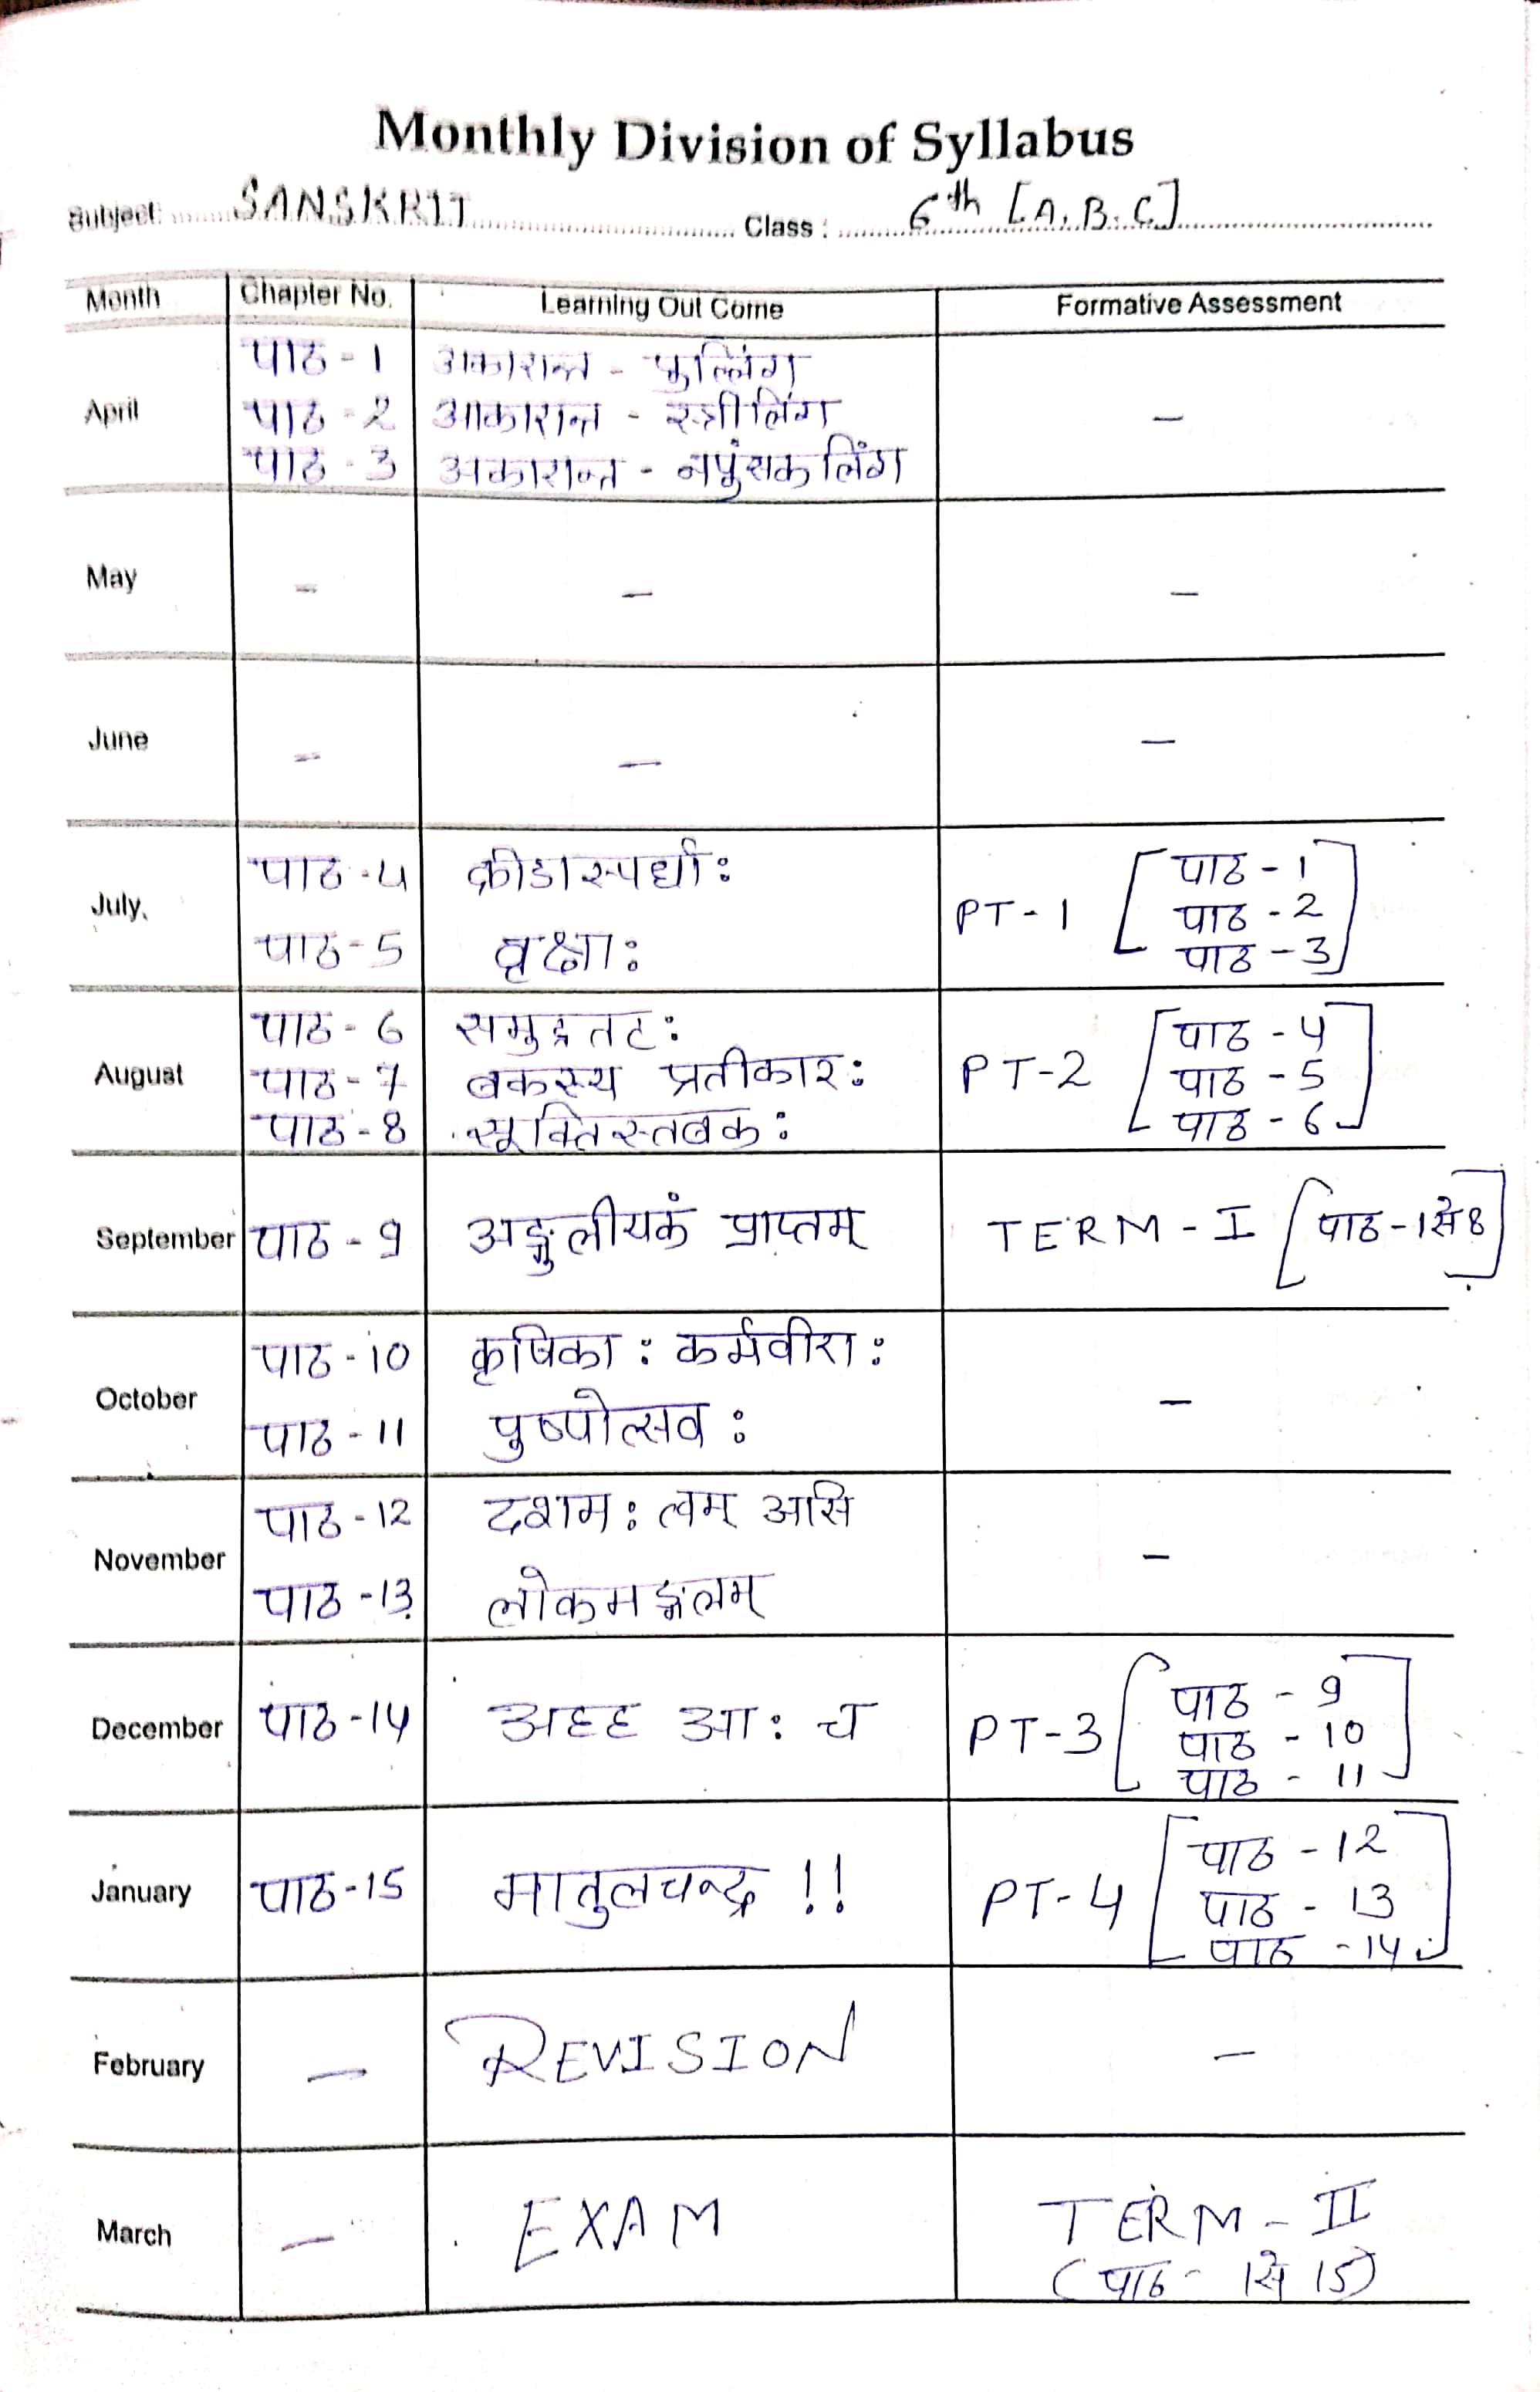 Monthly Division of Syllabus
Subject: SANSKRIT Class : 6th [A.B.C]
Month Chapter No. Learning Out Come Formative Assessment
April
पाठ - 1 अकारान्त - पुल्लिंग
पाठ - 2 आकारान्त - स्त्रीलिंग -
पाठ - 3 अकारान्त - नपुंसक लिंग
May - - -
June - - -
July.
पाठ - 4 क्रीडास्पर्धा:
पाठ - 5 वृक्षा:
PT - 1 [पाठ - 1
पाठ - 2
पाठ - 3]
August
पाठ - 6 समुद्रतट:
पाठ - 7 बकस्य प्रतीकार:
पाठ - 8 सूक्तिस्तबक:
PT-2 [पाठ - 4
पाठ - 5
पाठ - 6]
September पाठ - 9 अङ्गुलीयकं प्राप्तम् TERM - I [पाठ - 1 से 8]
October
पाठ - 10 कृषिका: कर्मवीरा:
पाठ - 11 पुष्पोत्सव:
-
November
पाठ - 12 दशम: त्वम् असि
पाठ - 13 लोकमङ्गलम्
-
December पाठ - 14 अहह आ: च
PT-3 [पाठ - 9
पाठ - 10
पाठ - 11]
January पाठ - 15 मातुलचन्द्र !!
PT- 4 [पाठ - 12
पाठ - 13
पाठ - 14]
February - REVISION -
March - EXAM TERM - II
(पाठ - 1 से 15)